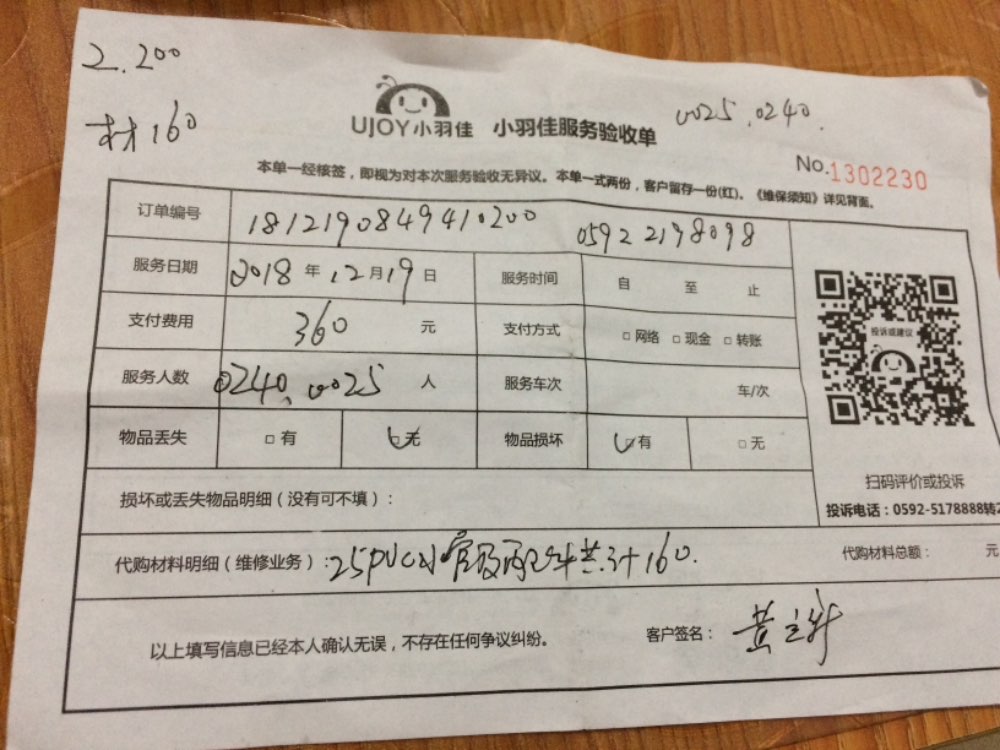 2.200
材160
UJOY小羽佳 小羽佳服务验收单
0025.0240.
No.1302230
本单一经核签，即视为对本次服务验收无异议。本单一式两份，客户留存一份(红)。《维保须知》详见背面。
订单编号 1812190849410200 0592 2198098
服务日期 2018 年 12 月 19 日 服务时间 自 至 止
支付费用 360 元 支付方式 □ 网络 □ 现金 □ 转账
服务人数 0240、0025 人 服务车次 车/次
物品丢失 □ 有 □ 无 物品损坏 □ 有 □ 无
投诉或建议
扫码评价或投诉
投诉电话：0592-5178888转2
损坏或丢失物品明细（没有可不填）：
代购材料明细（维修业务）：25PVC水管及配件共计160. 代购材料总额： 元
以上填写信息已经本人确认无误，不存在任何争议纠纷。 客户签名：黄